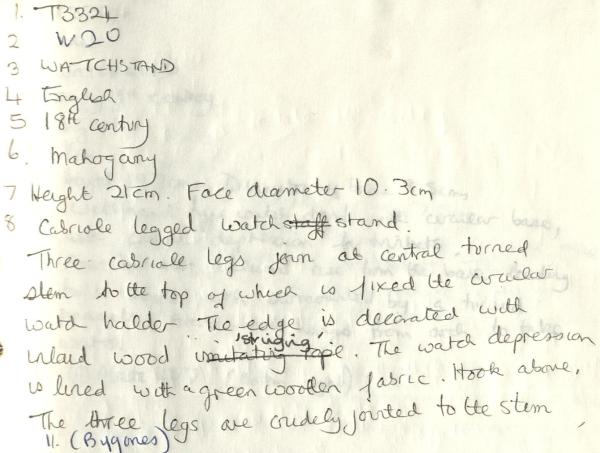 1. T3324
2 W20
3 WATCHSTAND
4 English
5 18th century
6. Mahogany
7 Height 21cm. Face diameter 10.3cm
8 Cabriole legged watch staff stand.
Three cabriole legs join at central turned
stem to the top of which is fixed the circular
watch holder The edge is decorated with
'stringing'.
inlaid wood imitating rope. The watch depression
is lined with a green woollen fabric. Hook above,
The three legs are crudely jointed to the stem
11. (Bygones)